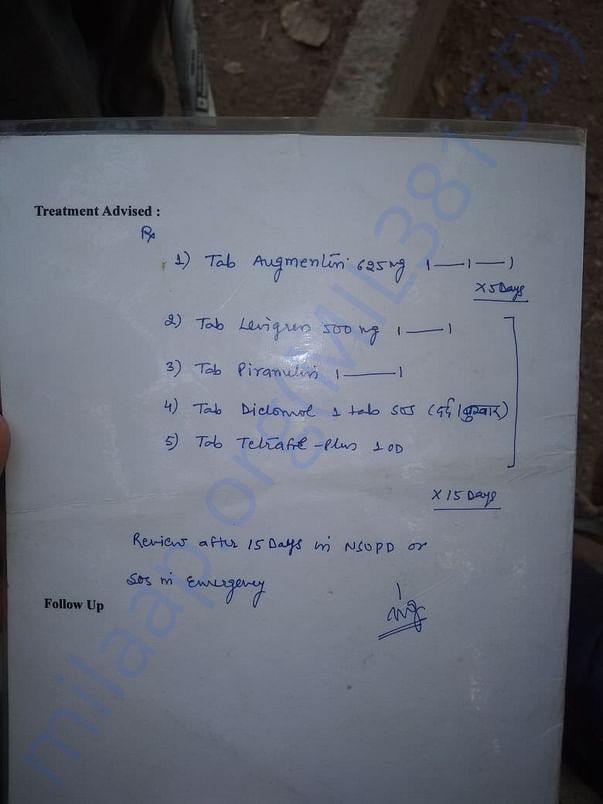 Treatment Advised :
Rx
1) Tab Augmentin 625mg 1—1—1
X 5 Days
2) Tab Levigress 500 mg 1—1
3) Tab Piramulin 1—1
4) Tab Diclomol 1 tab SOS (दर्द/बुखार)
5) Tab Tetrafol-Plus 1 OD
X 15 Days
Review after 15 Days in NSOPD or
SOS in Emergency
Follow Up
milaap.org(MIL38155)